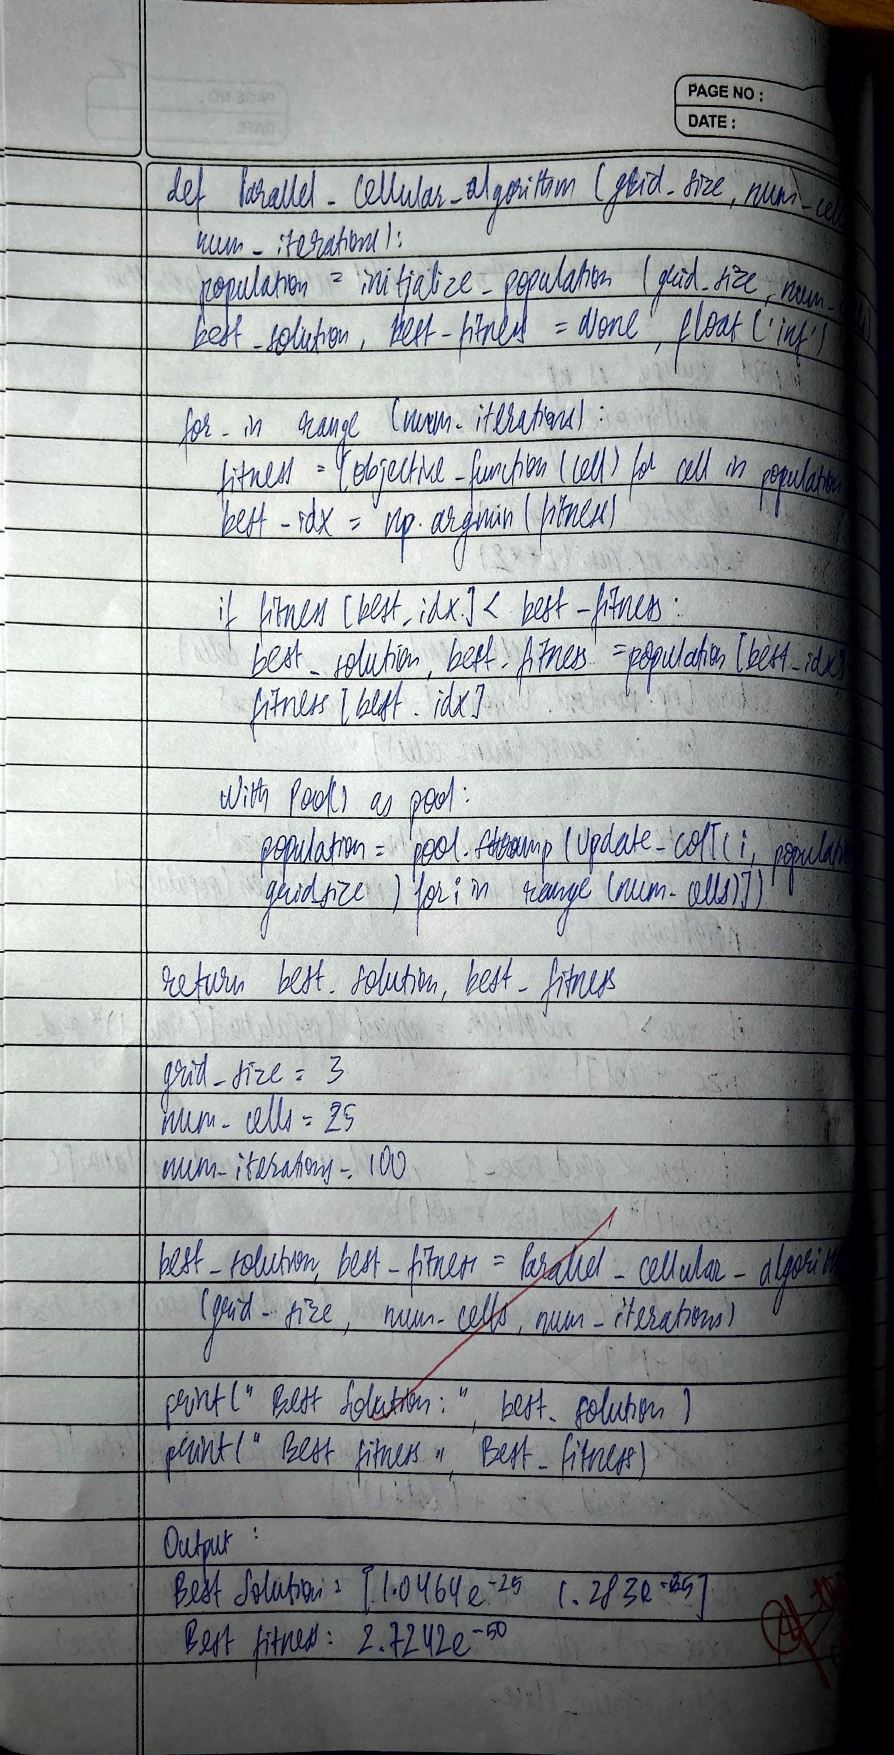 PAGE NO :
DATE :
def Parallel_cellular_algorithm (grid_size, num_cell
num_iterations):
population = initialize_population (grid_size, num_
best_solution, best_fitness = None, float('inf')
for_in range (num_iterations):
fitness = [objective_function (cell) for cell in population
best_idx = np.argmin (fitness)
if fitness [best_idx] < best_fitness:
best_solution, best_fitness = population [best_idx]
fitness [best_idx]
With Pool() as pool:
population = pool. (update_cell[(i, population
gridsize) for i in range (num_cells)])
return best_solution, best_fitness
grid_size = 3
num_cells = 25
num_iterations = 100
best_solution, best_fitness = Parallel_cellular_algorith
(grid_size, num_cells, num_iterations)
print(" Best Solution : ", best_solution )
print(" Best fitness ", Best_fitness)
Output :
Best Solution = [1.0464e-25 1.283e-25]
Best fitness : 2.7242e-50